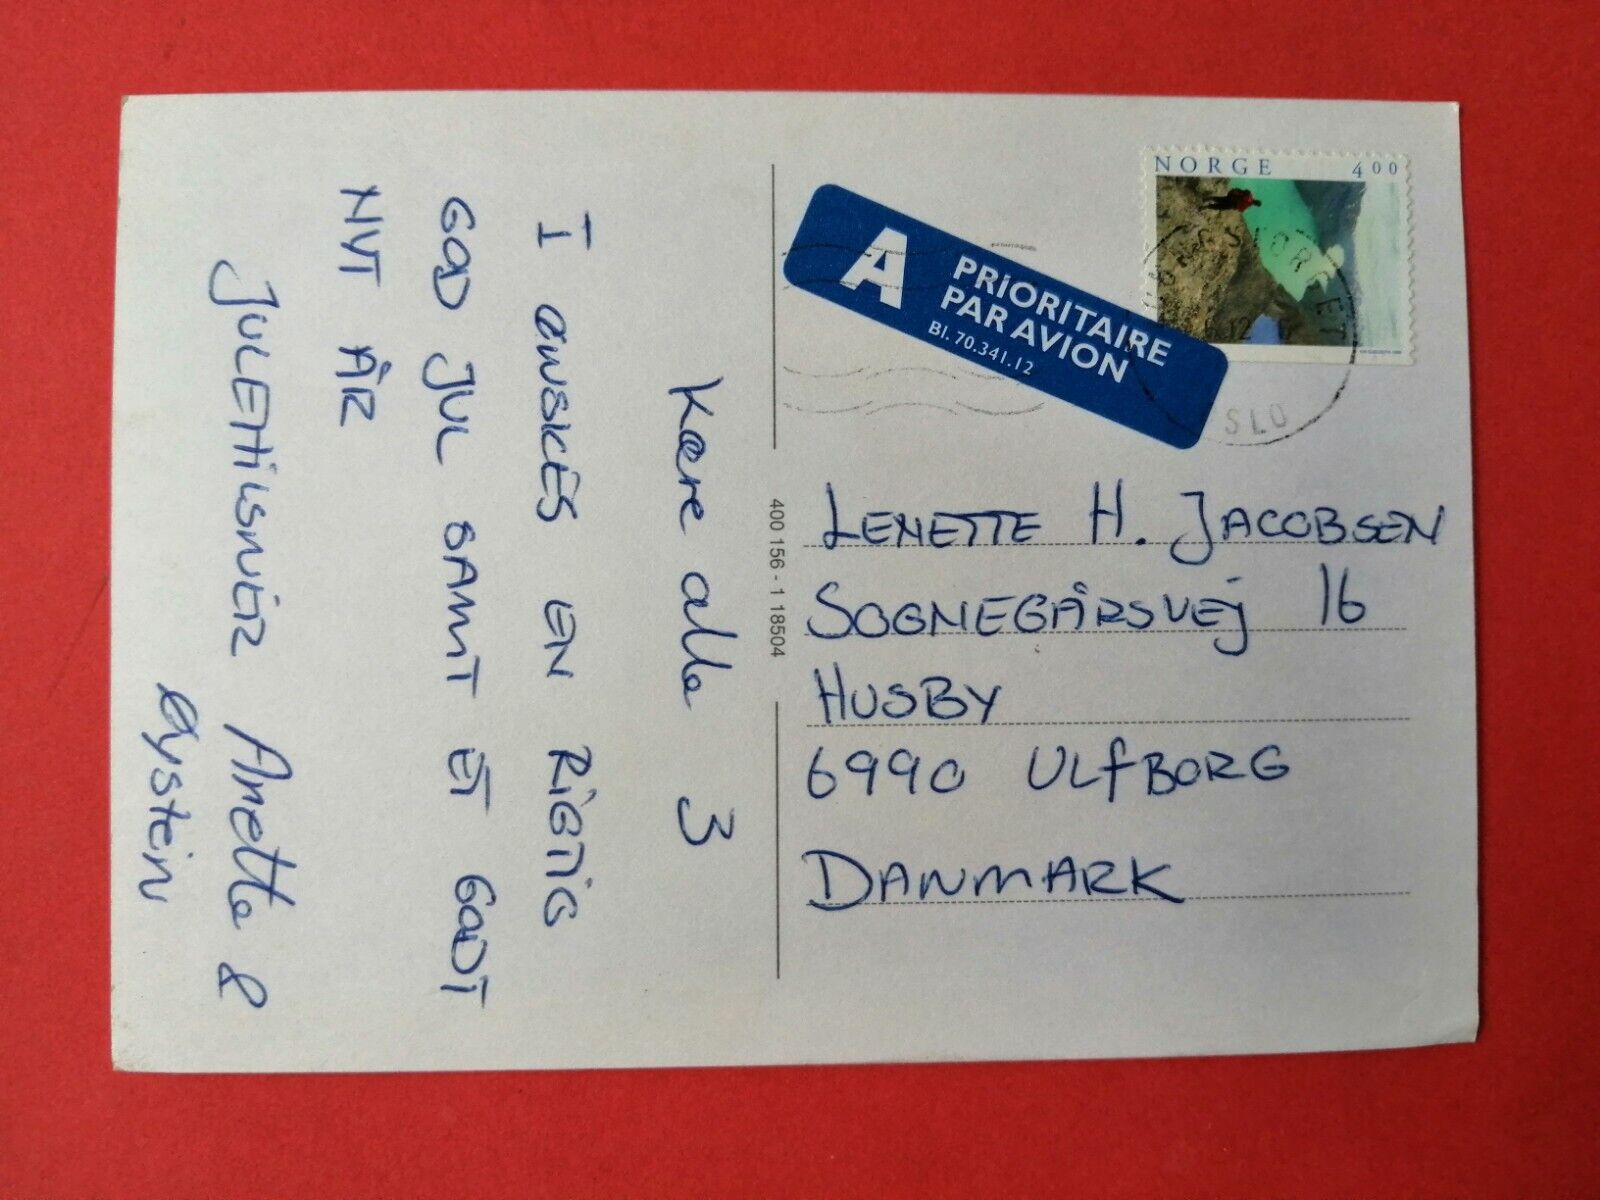 Kære alle 3
I ØNSKES EN RIGTIG
GOD JUL SAMT ET GODT
NYT ÅR
JULEHILSNER Anette &
Øystein
400 156 - 1 18504
NORGE 4 00
A PRIORITAIRE
PAR AVION
Bl. 70.341.12
LENETTE H. JACOBSEN
SOGNEGÅRSVEJ 16
HUSBY
6990 ULFBORG
DANMARK